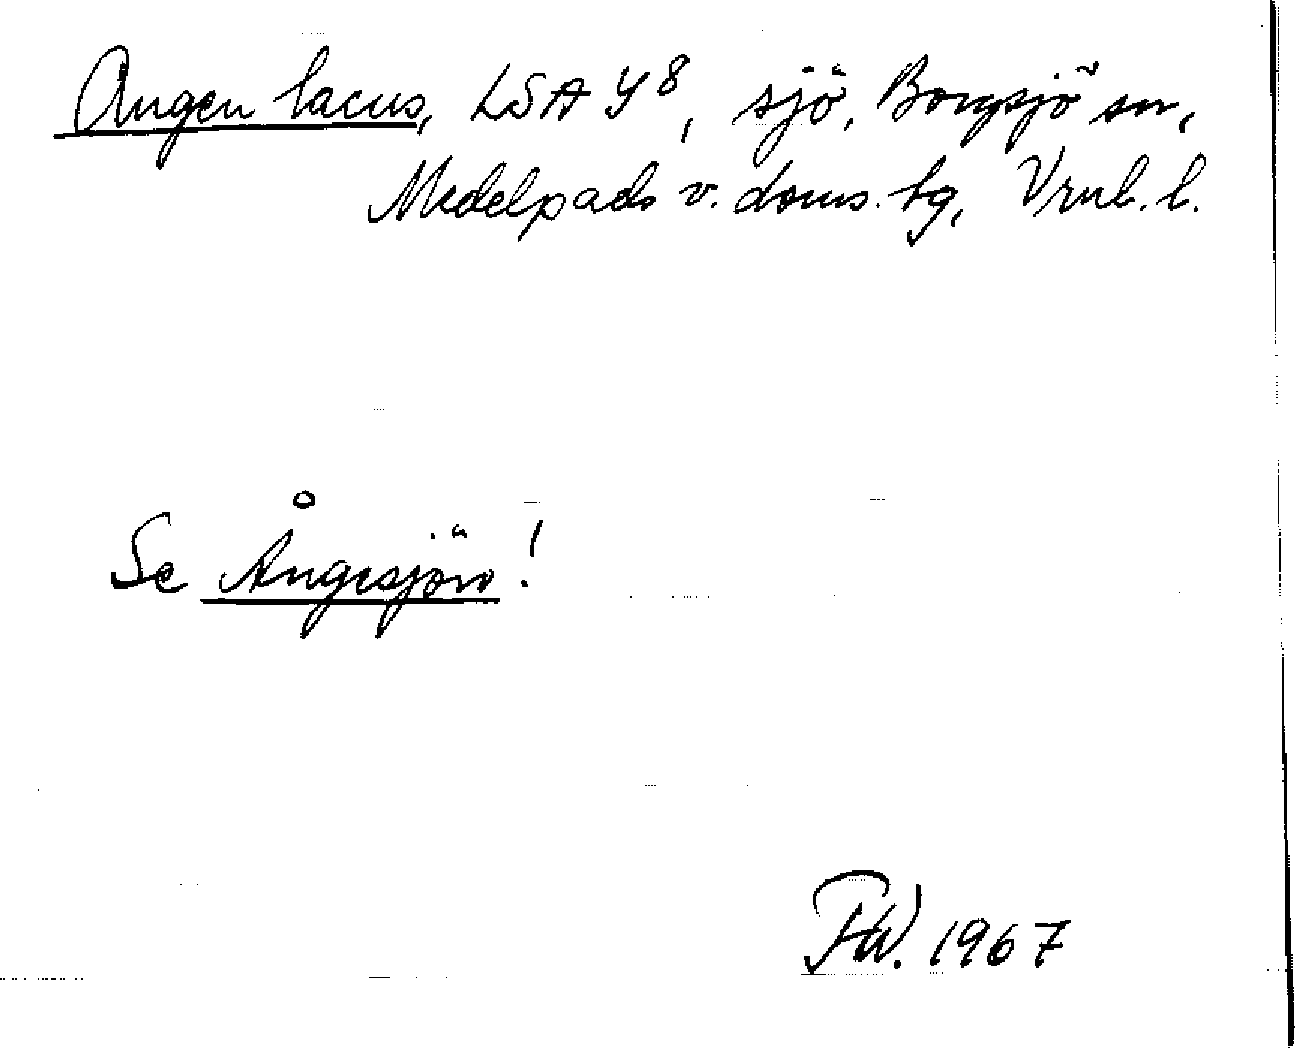 Angen lacus, LSA Y8, sjö, Borgsjö sn,
Medelpads v. doms. tg, Vrnl. l.
Se Ångesjön!
FW. 1967